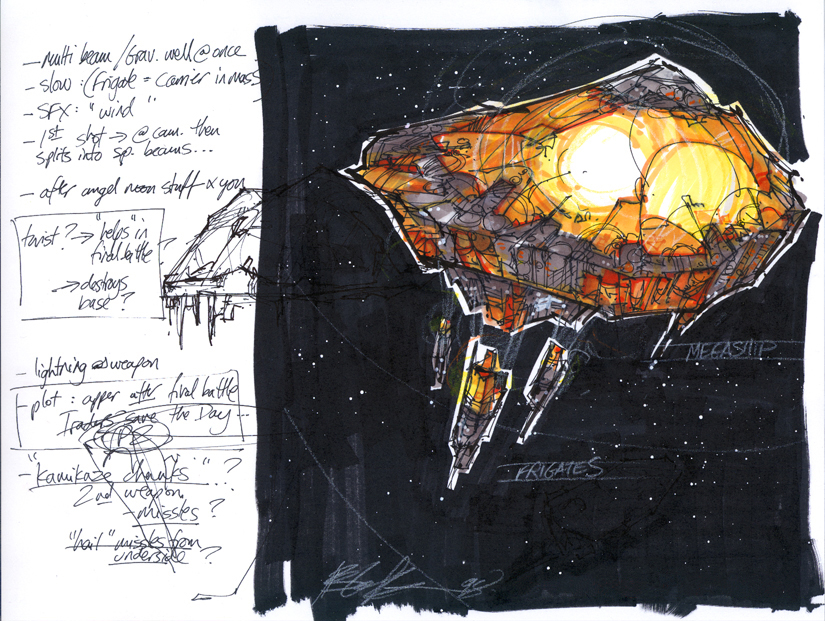 - Multi beam / Grav. well @ once
- slow :( Frigate = Carrier in mass
- SFX: "wind"
- 1st shot → @ cam. then
splits into sp. beams...
- after angel moon stuff
twist? → "helps" in
final battle
→ destroys
base?
- lightning as weapon
- plot : apper after final battle
Traders save the Day...
- "kamikaze chunks"...?
2nd weapon
- missles?
"hail" missles from
underside ?
MEGASHIP
FRIGATES
98